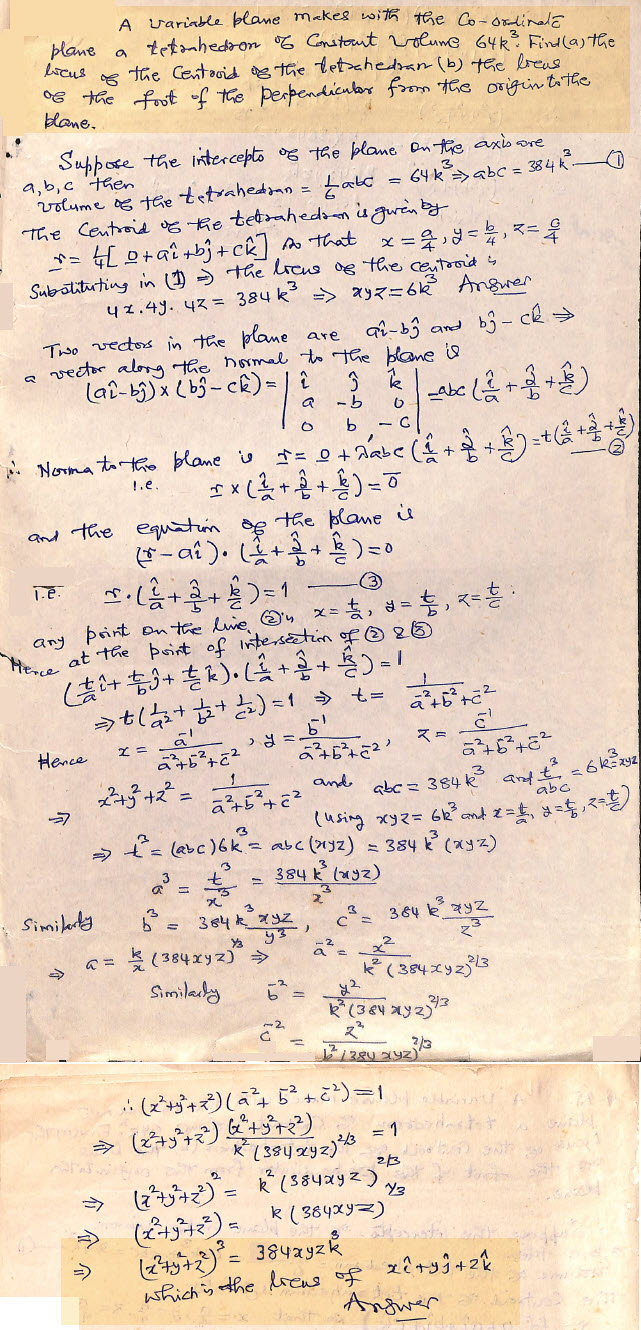 A variable plane makes with the Co-ordinate
plane a tetrahedron of Constant volume 64k³. Find (a) the
locus of the Centroid of the tetrahedran (b) the locus
of the foot of the perpendicular from the origin to the
plane.
Suppose the intercepts of the plane on the axis are
a, b, c then
Volume of the tetrahedran = 1/6 abc = 64k³ ⇒ abc = 384k³ — ①
The Centroid of the tetrahedron is given by
r = 1/4[0 + aî + bĵ + ck̂] so that x = a/4, y = b/4, z = c/4
Substituting in (1) ⇒ the locus of the centroid is
4x.4y.4z = 384k³ ⇒ xyz = 6k³ Answer
Two vectors in the plane are aî-bĵ and bĵ-ck̂ ⇒
a vector along the normal to the plane is
(aî-bĵ)×(bĵ-ck̂) = | î ĵ k̂ |
| a -b 0 | = abc(î/a + ĵ/b + k̂/c)
| 0 b -c |
∴ Norma to the plane is r = 0 + λ'abc(î/a + ĵ/b + k̂/c) = t(î/a + ĵ/b + k̂/c) — ②
i.e. r × (î/a + ĵ/b + k̂/c) = 0
and the equation of the plane is
(r - aî)·(î/a + ĵ/b + k̂/c) = 0
i.e. r·(î/a + ĵ/b + k̂/c) = 1 — ③
any point on the line ② is x = t/a, y = t/b, z = t/c.
Hence at the point of intersection of ② & ③
(t/a î + t/b ĵ + t/c k̂)·(î/a + ĵ/b + k̂/c) = 1
⇒ t(1/a² + 1/b² + 1/c²) = 1 ⇒ t = 1/(a⁻²+b⁻²+c⁻²)
Hence x = a⁻¹/(a⁻²+b⁻²+c⁻²), y = b⁻¹/(a⁻²+b⁻²+c⁻²), z = c⁻¹/(a⁻²+b⁻²+c⁻²)
⇒ x²+y²+z² = 1/(a⁻²+b⁻²+c⁻²) and abc = 384k³ and t³/abc = 6k³ = xyz
(using xyz = 6k³ and x = t/a, y = t/b, z = t/c)
⇒ t³ = (abc)6k³ = abc(xyz) = 384k³(xyz)
a³ = t³/x³ = 384k³(xyz)/x³
Similarly b³ = 384k³xyz/y³, c³ = 384k³xyz/z³
⇒ a = k/x (384xyz)^1/3 ⇒ a⁻² = x²/(k²(384xyz)^2/3)
Similarly b⁻² = y²/(k²(384xyz)^2/3)
c⁻² = z²/(k²(384xyz)^2/3)
∴ (x²+y²+z²)(a⁻²+b⁻²+c⁻²) = 1
⇒ (x²+y²+z²) (x²+y²+z²)/(k²(384xyz)^2/3) = 1
⇒ (x²+y²+z²)² = k²(384xyz)^2/3
⇒ (x²+y²+z²) = k(384xyz)^1/3
⇒ (x²+y²+z²)³ = 384xyzk³
which is the locus of xî+yĵ+zk̂
Answer